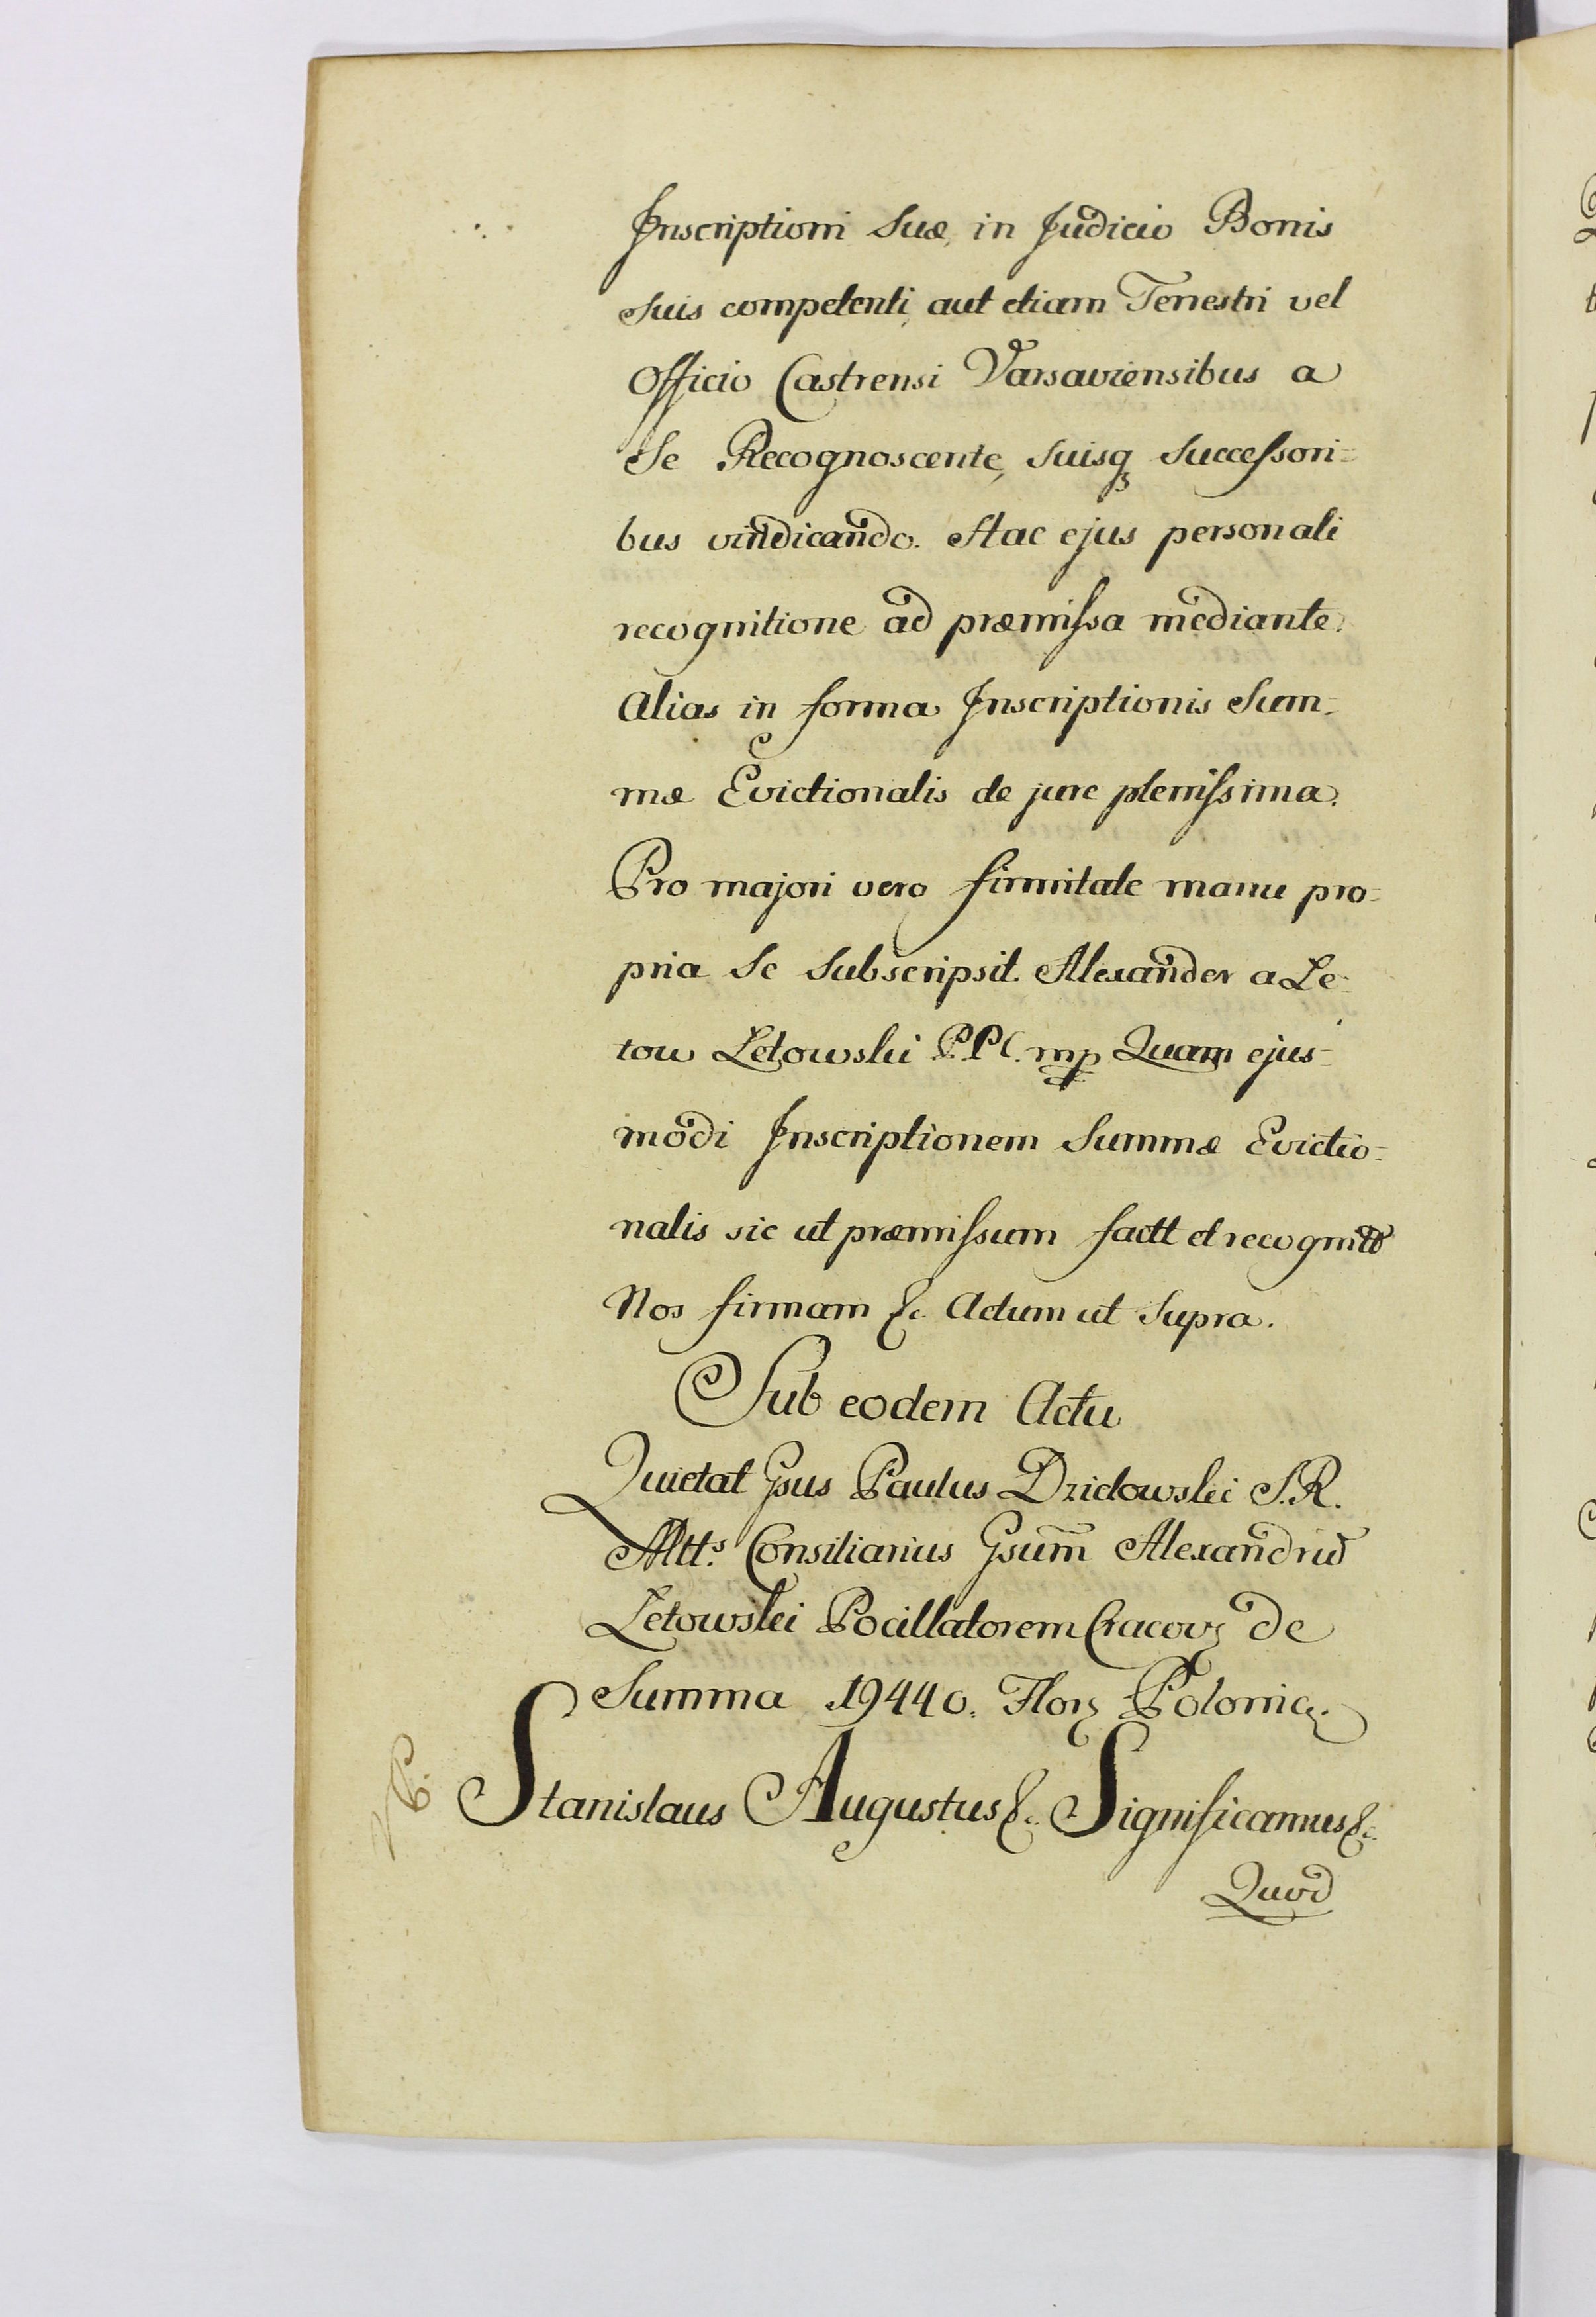 Inscriptioni Suæ, in Judicio Bonis
suis competenti, aut etiam Terrestri vel
Officio Castrensi Varsaviensibus a
Se Recognoscente, suisq successori=
bus vindicando. Hac ejus personali
recognitione ad præmissa mediante.
Alias in forma Inscriptionis Sum=
mæ Evictionalis de jure plenissima.
Pro majori vero firmitate manu pro=
pria Se Subscripsit. Alexander a Le=
tow Letowski P.P.C. mp Quam ejus=
modi Inscriptionem Summæ Evictio=
nalis sic ut præmissum factt et recognitt
Nos firmam &c. Actum ut Supra.
Sub eodem Actu
Quietat Gsus Paulus Dzidowski S.R.
Mtts. Consiliarius Gsum Alexandrū
Letowski Pocillatorem Cracov de
Summa 19440. Flor Polonic.
Stanislaus Augustus &c. Significamus &c.
Quod